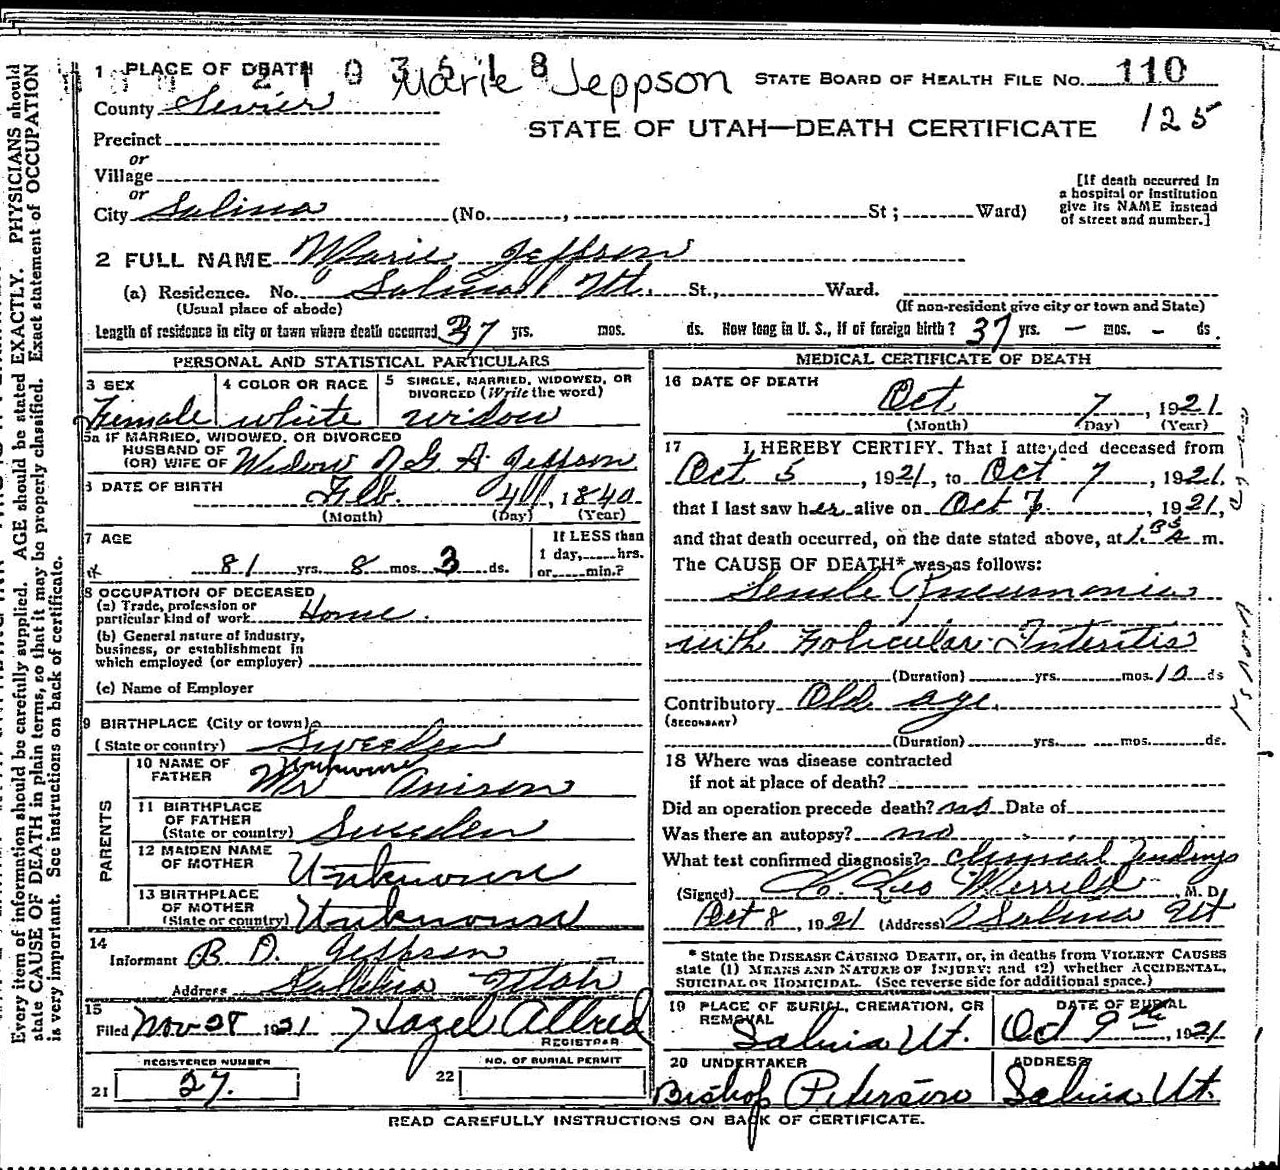 Every item of information should be carefully supplied. AGE should be stated EXACTLY. PHYSICIANS should
state CAUSE OF DEATH in plain terms, so that it may be properly classified. Exact statement of OCCUPATION
is very important. See instructions on back of certificate.
1 PLACE OF DEATH
2 1 0 3 5 1 8
Marie Jeppson
STATE BOARD OF HEALTH FILE No. 110
125
County Sevier
STATE OF UTAH—DEATH CERTIFICATE
Precinct
or
Village
or
City Salina (No. , St ; Ward)
[If death occurred in
a hospital or institution
give its NAME instead
of street and number.]
2 FULL NAME Marie Jeppson
(a) Residence. No. Salina Ut. St., Ward.
(Usual place of abode) (If non-resident give city or town and State)
Length of residence in city or town where death occurred 37 yrs. mos. ds. How long in U. S., if of foreign birth? 37 yrs. — mos. – ds.
PERSONAL AND STATISTICAL PARTICULARS
3 SEX Female
4 COLOR OR RACE white
5 SINGLE, MARRIED, WIDOWED, OR
DIVORCED (Write the word)
widow
5a IF MARRIED, WIDOWED, OR DIVORCED
HUSBAND OF
(OR) WIFE OF Widow of G A Jeppson
6 DATE OF BIRTH Feb. 4th, 1840
(Month) (Day) (Year)
7 AGE
81 yrs. 8 mos. 3 ds.
If LESS than
1 day, hrs.
or min.?
8 OCCUPATION OF DECEASED
(a) Trade, profession or
particular kind of work Home.
(b) General nature of industry,
business, or establishment in
which employed (or employer)
(c) Name of Employer
9 BIRTHPLACE (City or town)
(State or country) Sweeden
PARENTS
10 NAME OF
FATHER Unknown
Mr
11 BIRTHPLACE
OF FATHER
(State or country) Sweeden
12 MAIDEN NAME
OF MOTHER Unknown
13 BIRTHPLACE
OF MOTHER
(State or country) Unknown
14
Informant B D. Jeppson
Address Utah
15
Filed Nov 28 1921 Hazel Allred
REGISTRAR
REGISTERED NUMBER
21 27.
NO. OF BURIAL PERMIT
22
MEDICAL CERTIFICATE OF DEATH
16 DATE OF DEATH
Oct 7, 1921
(Month) (Day) (Year)
17 I HEREBY CERTIFY. That I attended deceased from
Oct 5, 1921, to Oct 7, 1921.
that I last saw her alive on Oct 7, 1921,
and that death occurred, on the date stated above, at m.
The CAUSE OF DEATH* was as follows:
Senile Pneumonia
with Folicular Interitis
(Duration) yrs. mos. 10 ds
Contributory Old age.
(SECONDARY)
(Duration) yrs. mos. ds.
18 Where was disease contracted
if not at place of death?
Did an operation precede death? no Date of
Was there an autopsy? no
What test confirmed diagnosis? Clinical findings
(Signed) Leo Merrill, M. D
Oct 8, 1921 (Address) Salina Ut
* State the DISEASE CAUSING DEATH, or, in deaths from VIOLENT CAUSES
state (1) MEANS AND NATURE OF INJURY; and (2) whether ACCIDENTAL,
SUICIDAL OR HOMICIDAL. (See reverse side for additional space.)
19 PLACE OF BURIAL, CREMATION, OR
REMOVAL
Salina Ut.
DATE OF BURIAL
Oct 9th, 1921
20 UNDERTAKER
Bishop Peterson
ADDRESS
Salina Ut.
READ CAREFULLY INSTRUCTIONS ON BACK OF CERTIFICATE.